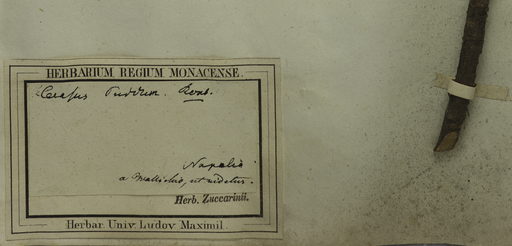 HERBARIUM REGIUM MONACENSE.
Cerasus Puddum. Roxb.
Napalia
a Wallichio, ut videtur.
Herb. Zuccarinii.
Herbar. Univ. Ludov. Maximil.